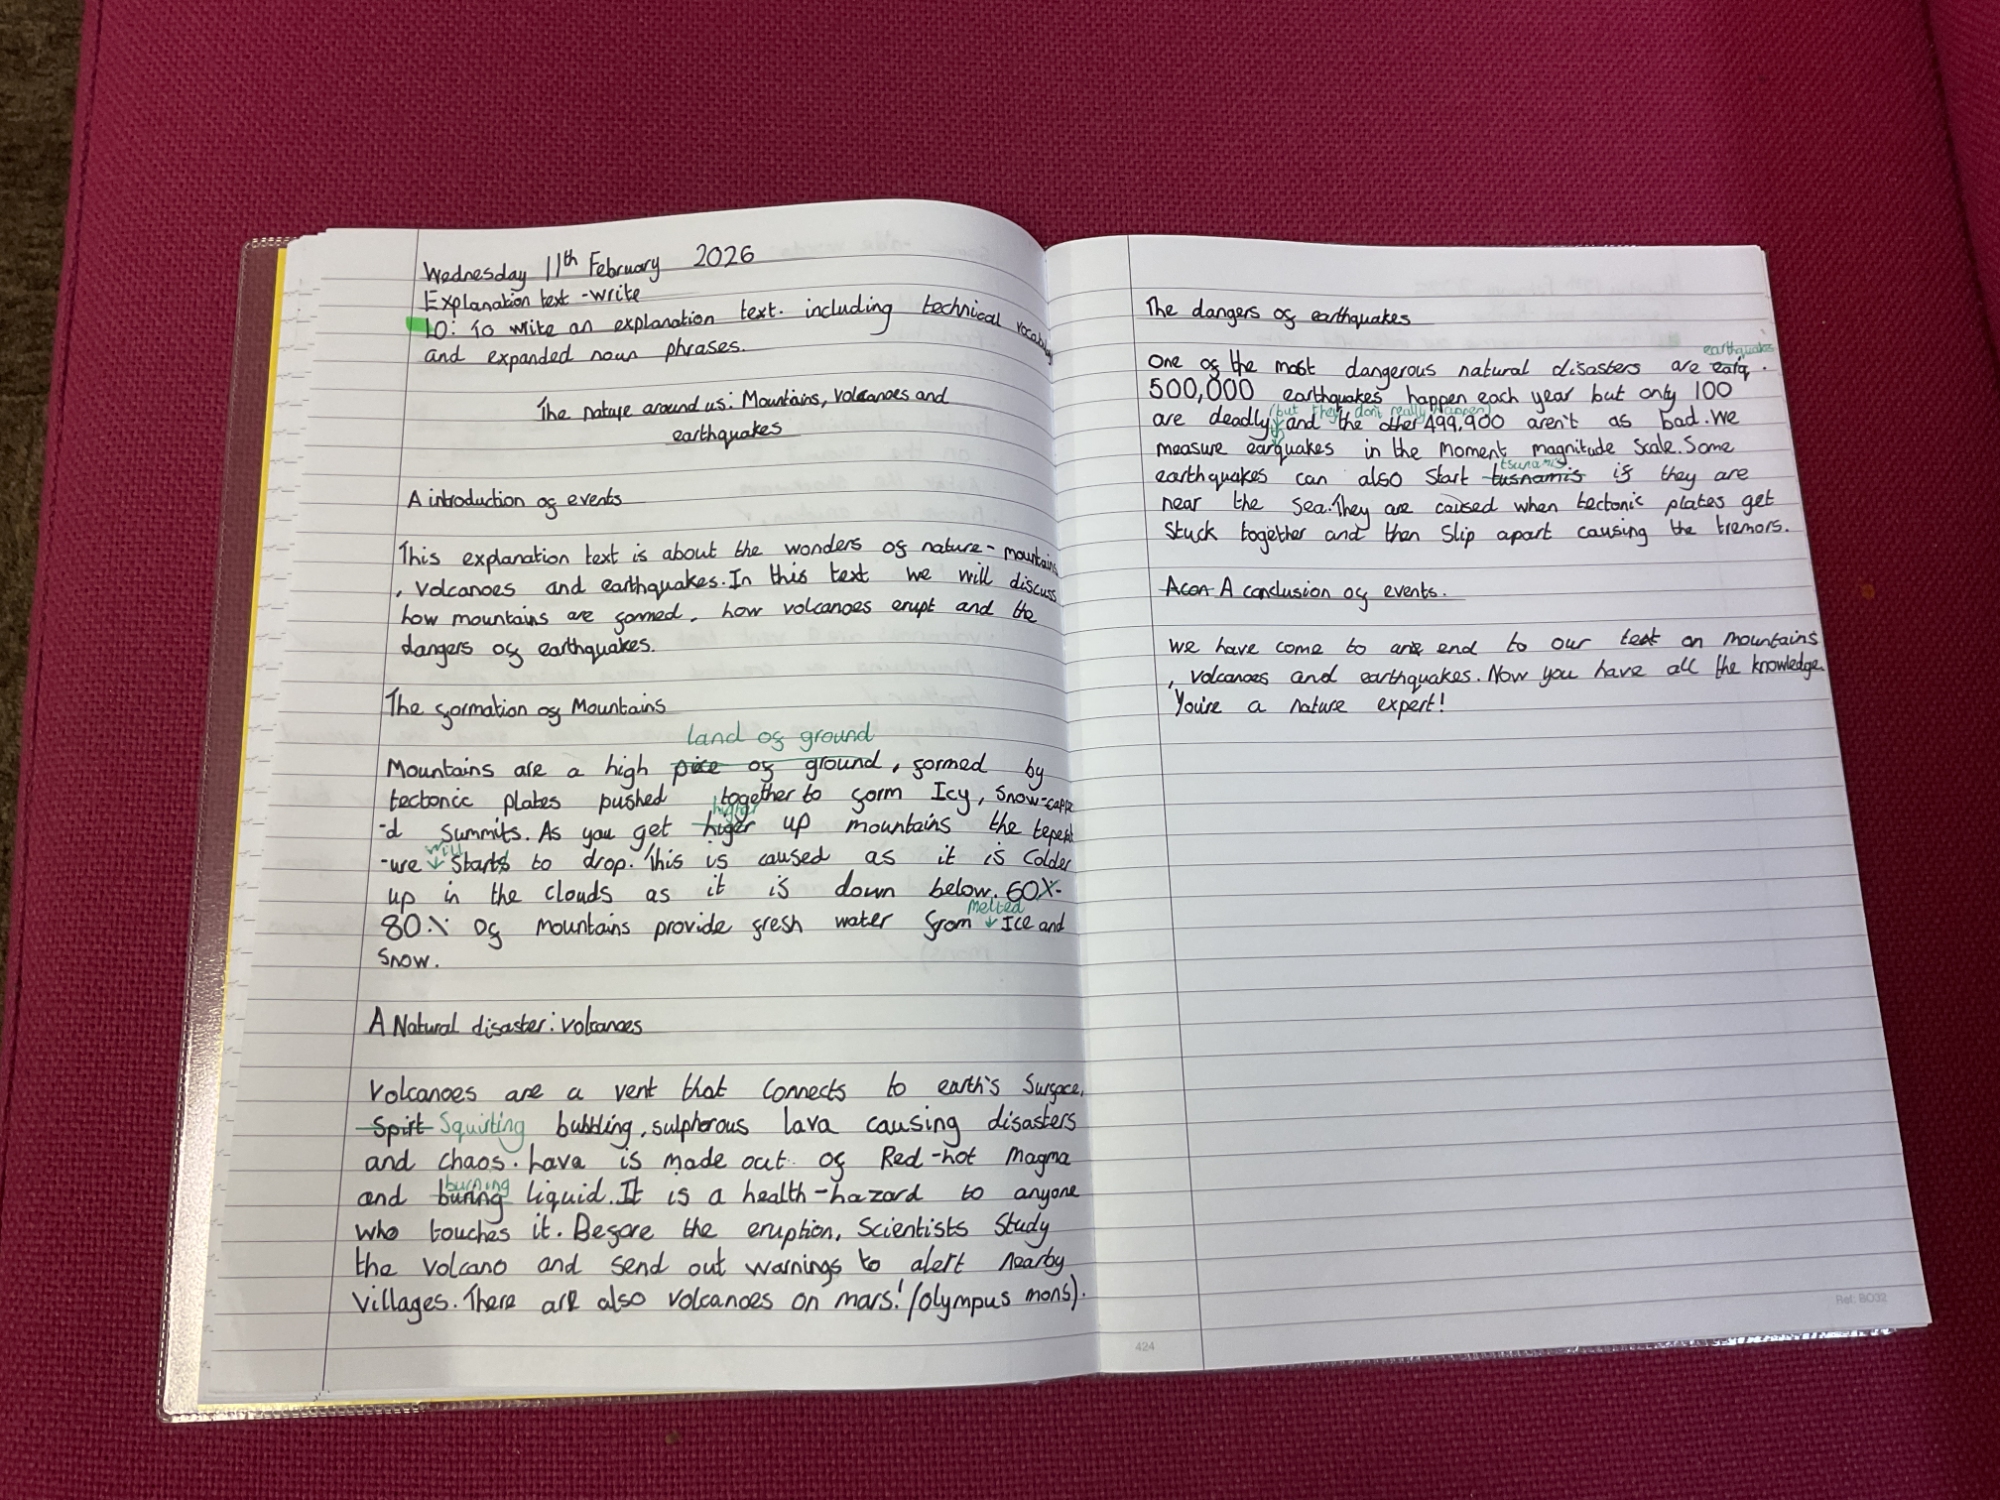 Wednesday 11th February 2026
Explanation text - write
LO: To write an explanation text. including technical vocabulary
and expanded noun phrases.
The nature around us: Mountains, Volcanoes and
earthquakes
A introduction of events
This explanation text is about the wonders of nature - mountains
, volcanoes and earthquakes. In this text we will discuss
how mountains are formed, how volcanoes erupt and the
dangers of earthquakes.
The formation of Mountains
land of ground
Mountains are a high pice of ground, formed by
tectonic plates pushed together to form Icy, snow-cappe
higher
-d summits. As you get higer up mountains the teperat
will
-ure starts to drop. This is caused as it is colder
up in the clouds as it is down below. 60%-
melted
80% of mountains provide fresh water from Ice and
snow.
A Natural disaster: volcanoes
Volcanoes are a vent that connects to earth's surface,
Spirt Squirting bubbling, sulphorous lava causing disasters
and chaos. Lava is made out of Red-hot Magma
burning
and buring liquid. It is a health-hazard to anyone
who touches it. Before the eruption, scientists study
the volcano and send out warnings to alert nearby
villages. There are also volcanoes on mars! (olympus mons).
The dangers of earthquakes
earthquakes
One of the most dangerous natural disasters are earq.
500,000 earthquakes happen each year but only 100
(but they don't really happen)
are deadly, and the other 499,900 aren't as bad. We
measure earquakes in the Moment magnitude scale. Some
tsunamis
earthquakes can also start tusnamis if they are
near the sea. They are caused when tectonic plates get
stuck together and then slip apart causing the tremors.
Acon A conclusion of events.
We have come to an end to our text on mountains
, volcanoes and earthquakes. Now you have all the knowledge.
You're a nature expert!
424
Ref: BO32